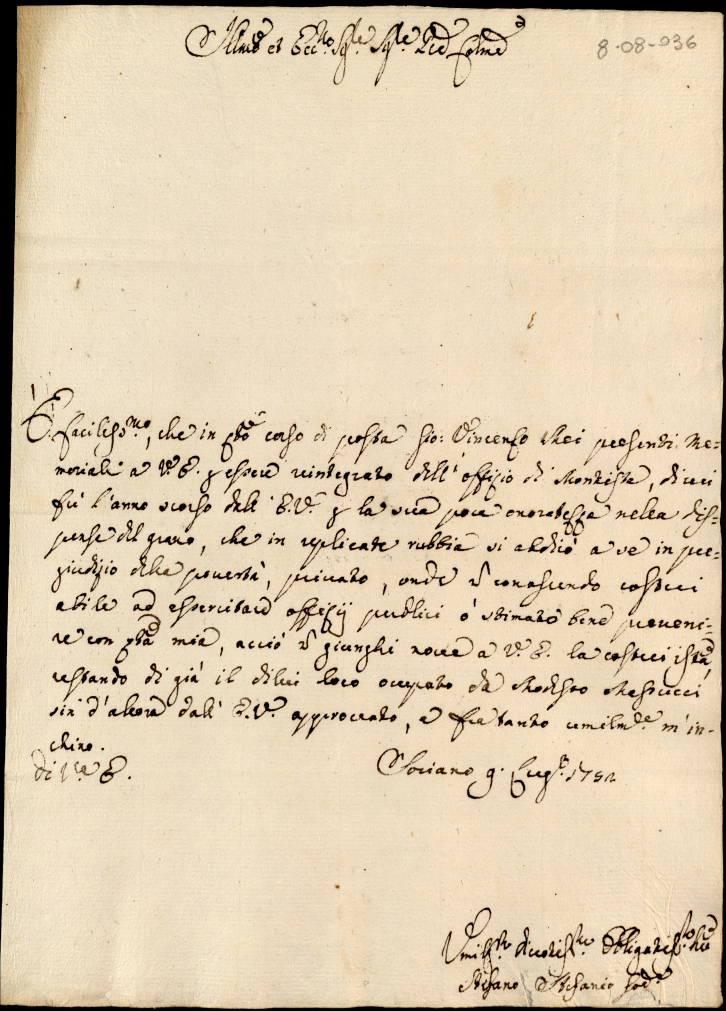 Illmo et Ecc.mo Sig.re Sig.re Pñe Colmo
8-08-036
È facilissmo, che in qto corso di posta sto: Vincenzo Mei presenti me-
moriale a V.ra E. p essere reintegrato dell'offizio di Montista, di cui
fù l'anno scorso dall'E.V. p la sua poca onoratezza nella dis-
pensa del grano, che in replicate rubbia si aldiò a se in pre-
giudizio della povertà, privato, onde nõ conoscendo costui
abile ad essercitare offizij publici ò stimato bene preveni-
re con qta mia, acciò nõ giunghi nova a V.ra E. la costui istza,
restando di già il dilui loco occupato da Modesto Mascucci
sin d'allora dall'E.V. approvato, e fra tanto umilmte m'in-
chino.
Di V.ra E.
Soriano 9. Lug.o 1752
Umilss.mo Divotiss.mo Obligatiss.mo Sre
Stefano Stefanio God.e